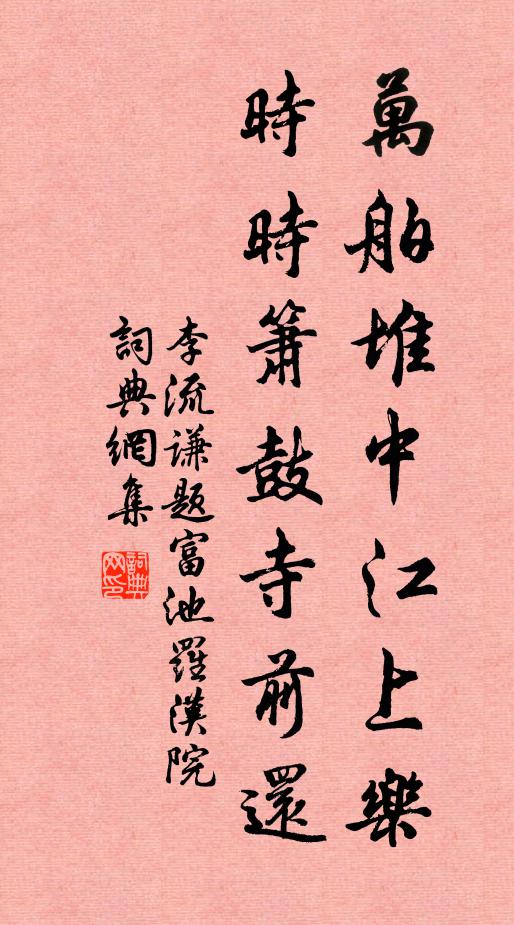 萬舶堆中江上樂
時時簫鼓寺前還
李流謙題富池羅漢院
詞典網集
詞典网印